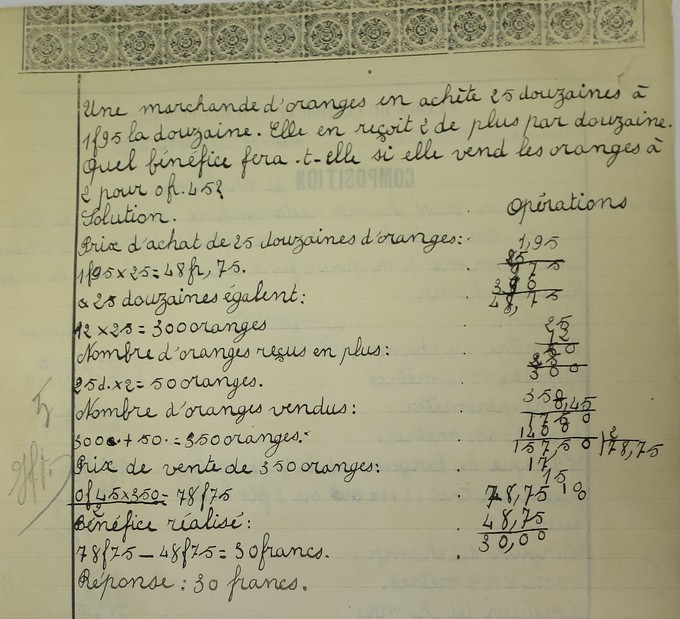 Une marchande d'oranges en achète 25 douzaines à
1f95 la douzaine. Elle en reçoit 2 de plus par douzaine.
Quel bénéfice fera-t-elle si elle vend les oranges à
2 pour 0f.45?
Solution. Opérations
Prix d'achat de 25 douzaines d'oranges: 1,95
1f95 x 25 = 48fr,75. 25
975
& 25 douzaines égalent: 390
48,75
12 x 25 = 300 oranges 25
12
Nombre d'oranges reçus en plus: 50
25
300
25d. x 2 = 50 oranges.
Nombre d'oranges vendus: 350
0,45
1750
1400
300 o. + 50 = 350 oranges. 157,50 2
78,75
Prix de vente de 350 oranges: 17
15
0f45 x 350 = 78f75 78,75 10
2
Bénéfice réalisé: 48,75
30,00
78f75 — 48f75 = 30 francs.
Réponse: 30 francs.